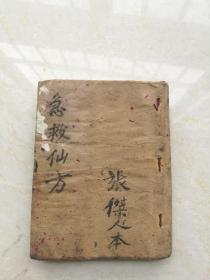 急救仙方
張傑本